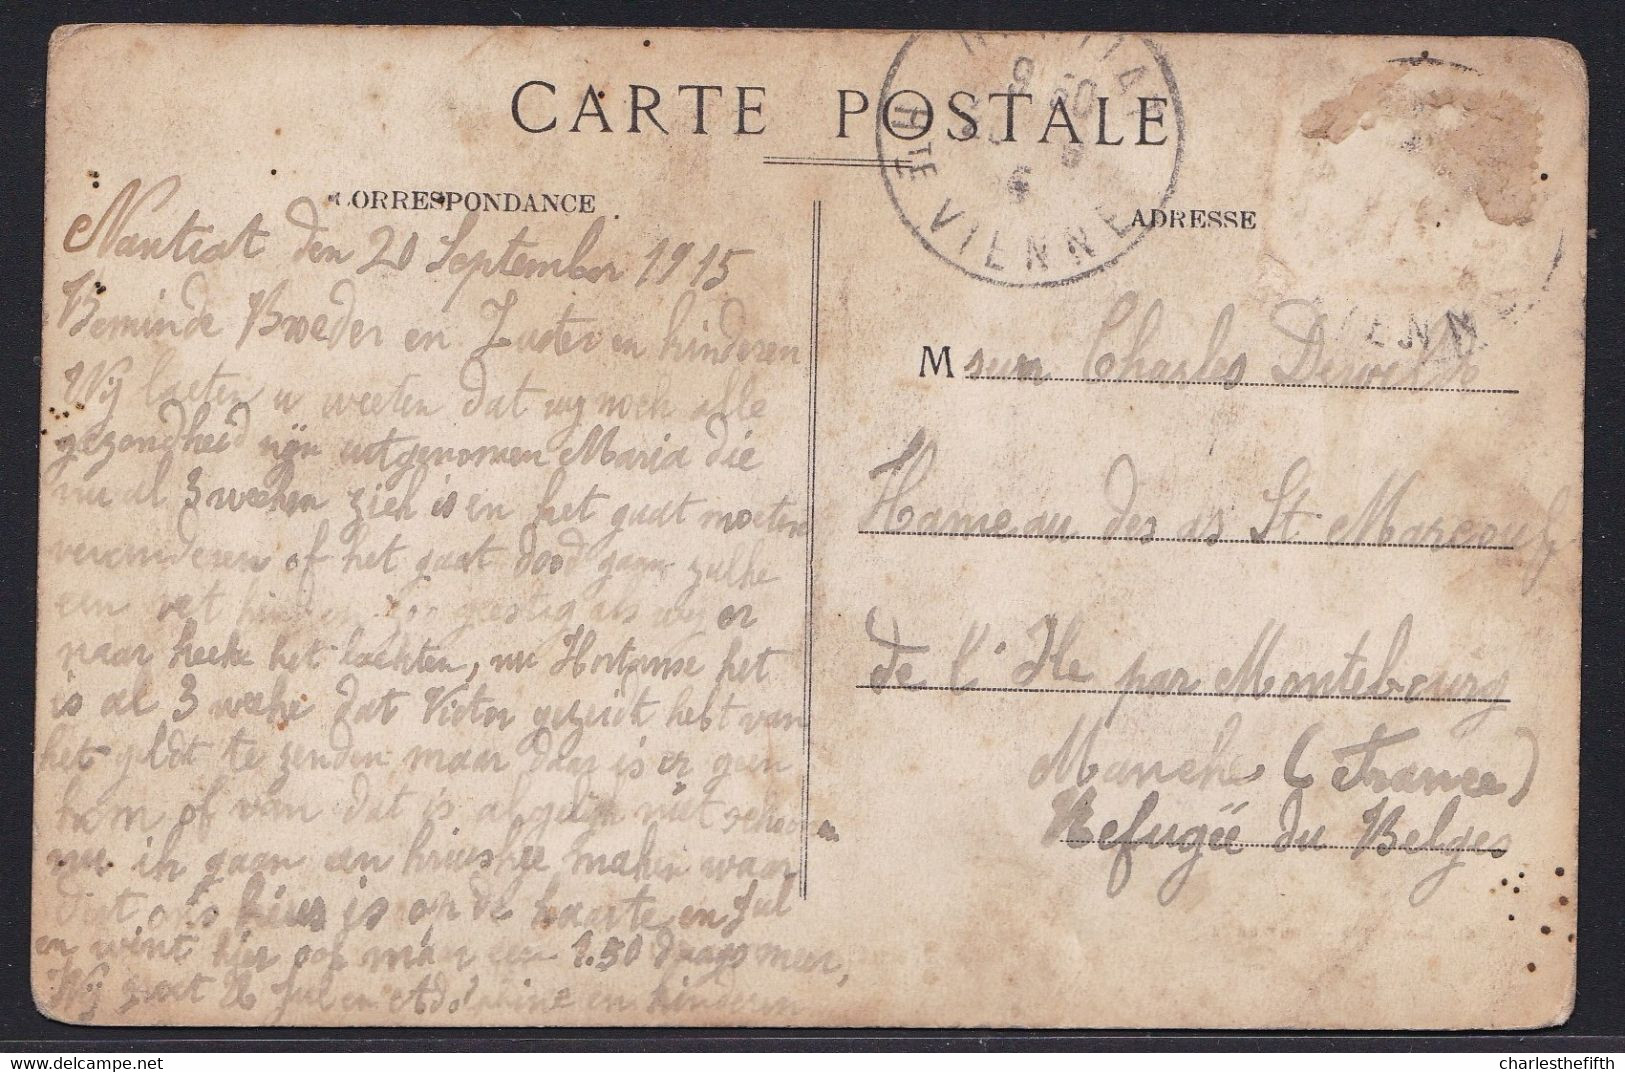 CARTE POSTALE
CORRESPONDANCE
ADRESSE
HTE VIENNE
VIENNE
Nantiat den 20 September 1915
Beminde Broeder en Zuster en kinderen
Wij laeten u weeten dat wij noch alle
gezondheid zijn uitgenomen Maria die
nu al 3 weeken ziek is en het gaat moeten
veranderen of het gaat dood gaan zulke
een vet kind en zoo geestig als wij er
naar keeke het lachten, nu Hortanse het
is al 3 weeke dat Victor gezeidt hebt van
het geldt te zenden maar daar is er geen
kom of van dat is algelijk niet schoonen
nu ik gaan een kruiskee maken waar
dat ons huus is op de kaarte en Jul
en wint hier ook maar een 1.50 daags meer,
Wij groet U Jul en Adolphine en kinderen
Msieur Charles
Hameau des as St Marcouf
de l'Ile par Montebourg
Manche (France)
Refugëe du Belges
charlesthefifth